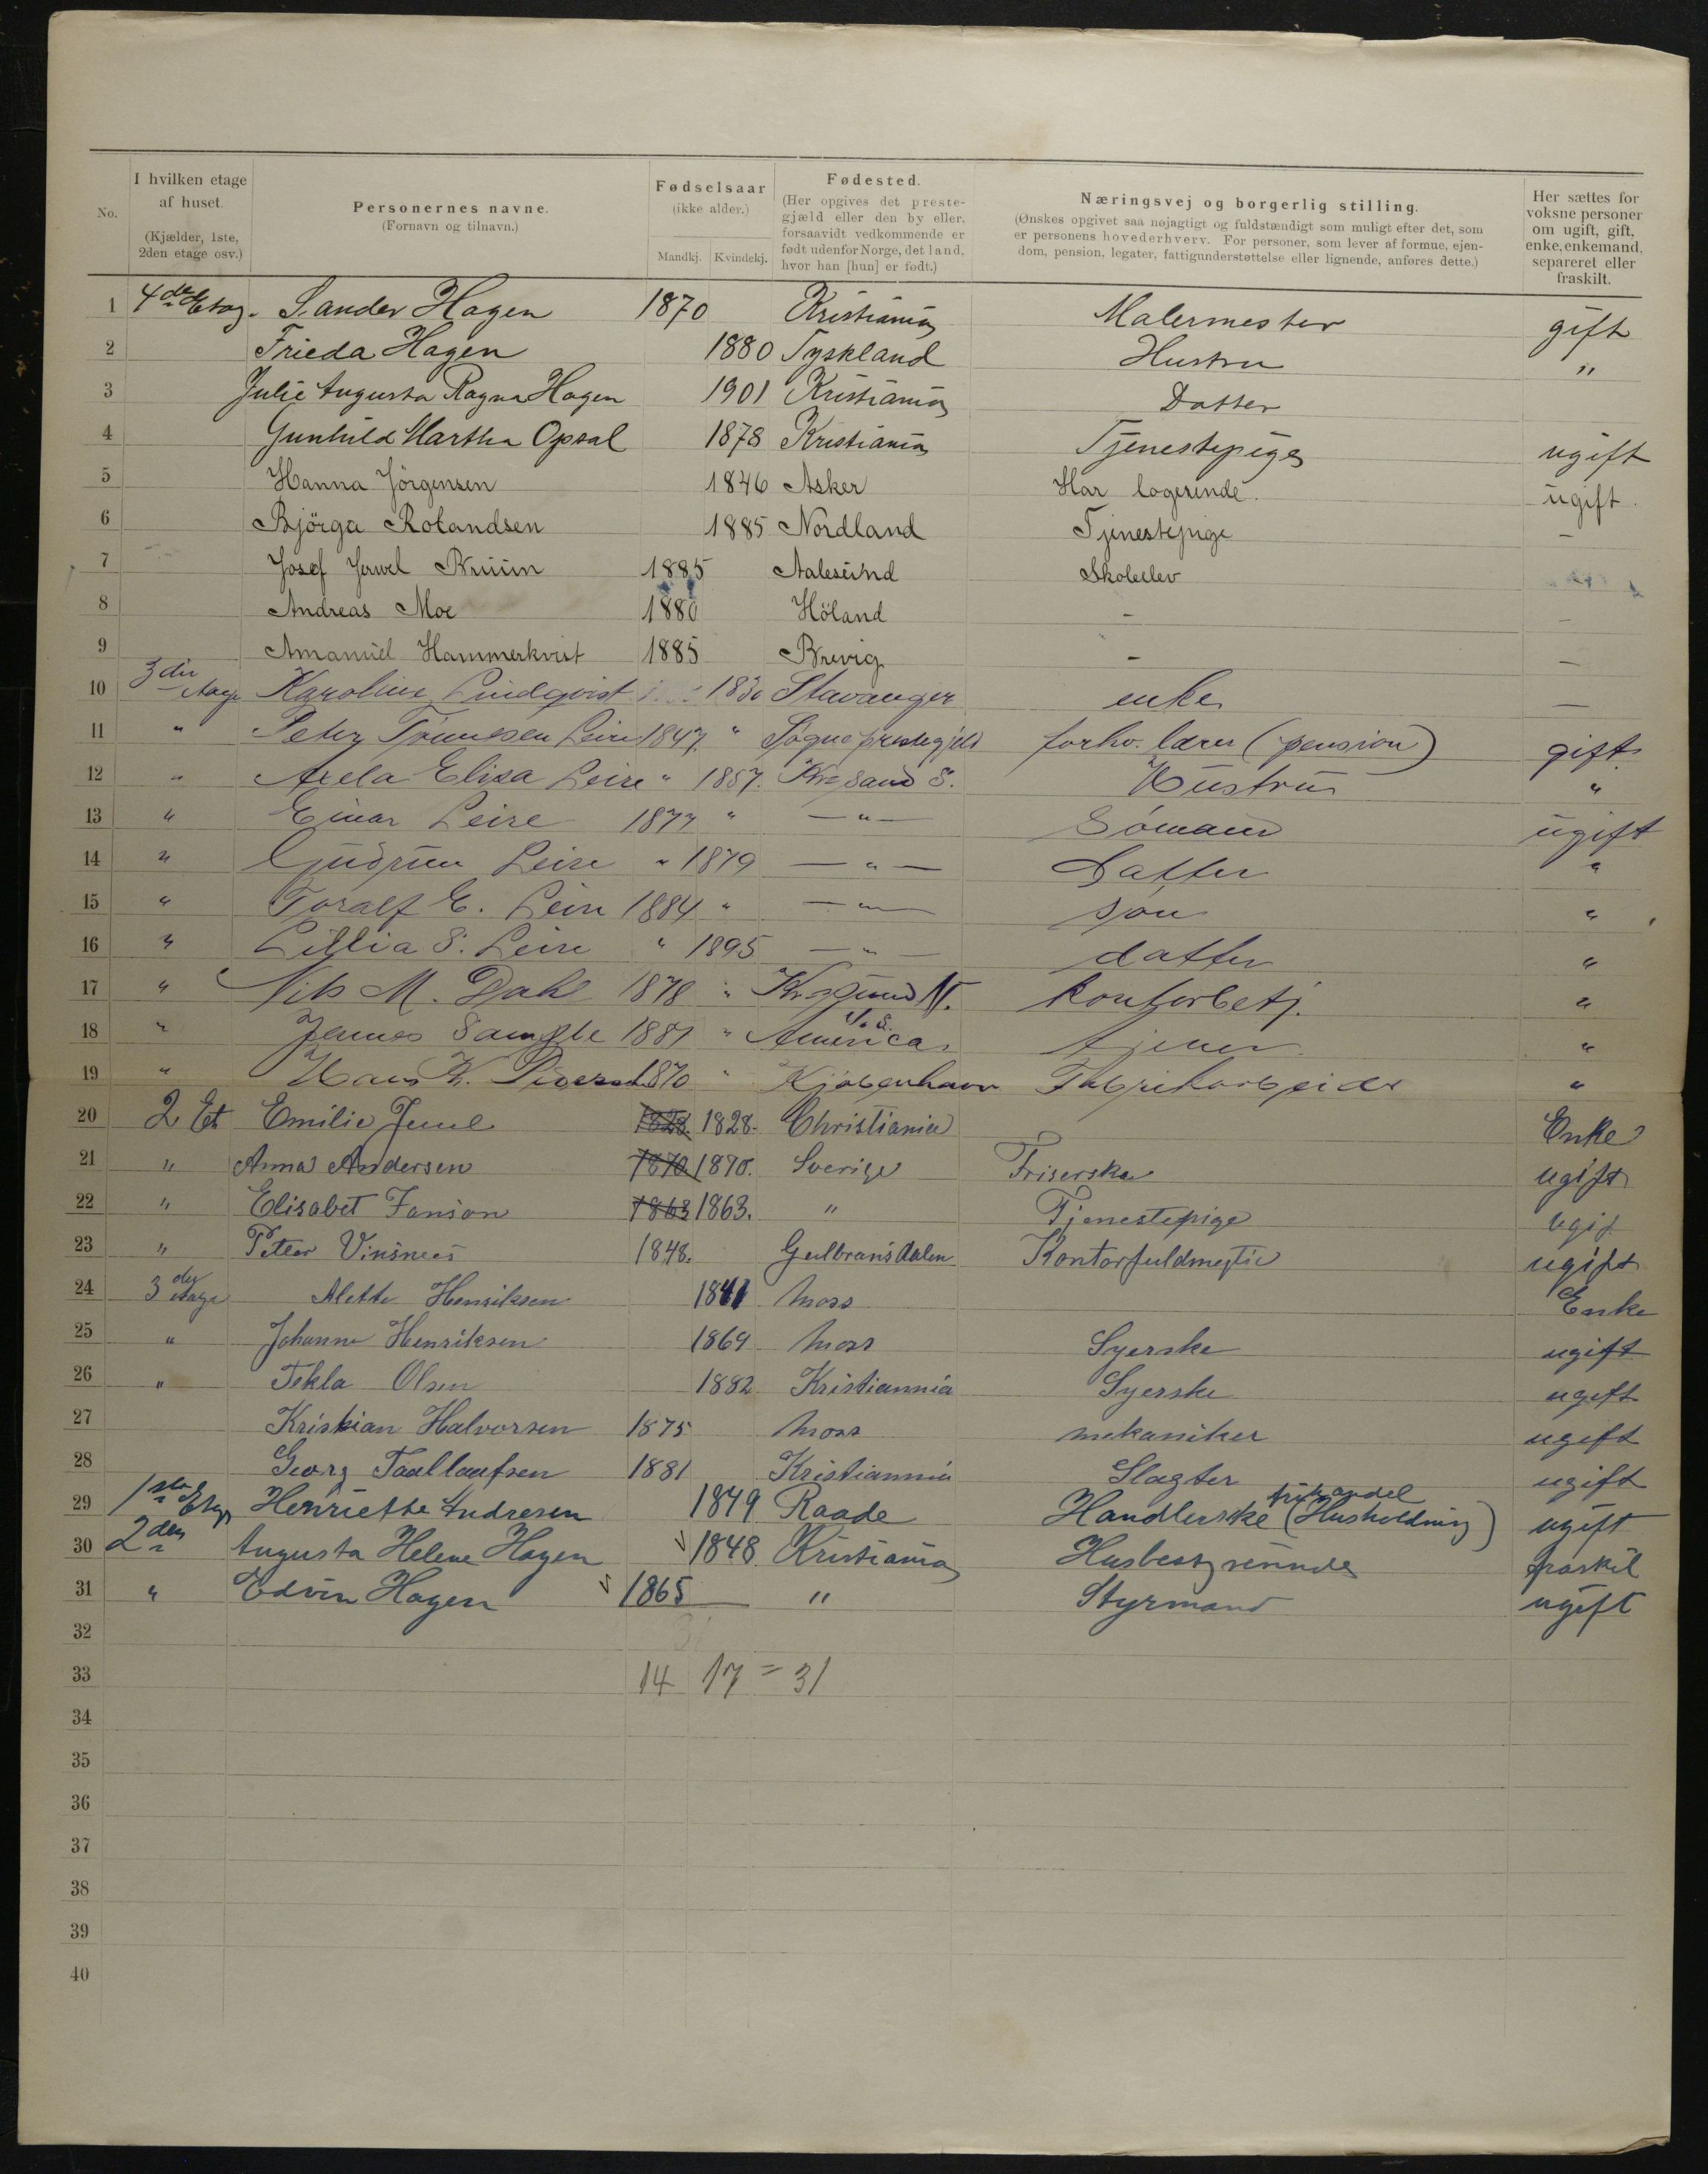 No.
I hvilken etage af huset. (Kjælder, 1ste, 2den etage osv.)
Personernes navne. (Fornavn og tilnavn.)
Fødselsaar (ikke alder.) Mandkj. Kvindekj.
Fødested. (Her opgives det prestegjæld eller den by eller, forsaavidt vedkommende er født udenfor Norge, det land, hvor han [hun] er født.)
Næringsvej og borgerlig stilling. (Ønskes opgivet saa nøjagtigt og fuldstændigt som muligt efter det, som er personens hovederhverv. For personer, som lever af formue, ejendom, pension, legater, fattigunderstøttelse eller lignende, anføres dette.)
Her sættes for voksne personer om ugift, gift, enke, enkemand, separeret eller fraskilt.
1 4de Etag. Sander Hagen 1870 Kristiania Malermester gift
2 Frieda Hagen 1880 Tyskland Hustru "
3 Julie Augusta Ragna Hagen 1901 Kristiania Datter
4 Gunhild Martha Opsal 1878 Kristiania Tjenestepige ugift
5 Hanna Jörgensen 1846 Asker Har logerende. ugift.
6 Björga Rolandsen 1885 Nordland Tjenestepige –
7 Josef Bruun 1885 Aalesund Skoleelev
8 Andreas Moe 1880 Höland – –
9 Amanuel Hammerkvist 1885 Brevig – –
10 3die Karoline Lindqvist 1830 Stavanger enke —
11 " Peter Tönnesen Leire 1847 " Sogne prestegjeld forhv. lærer (pension) gift
12 " Axela Elisa Leire " 1857. Krsand S. Hustru "
13 " Einar Leire 1877 " — " — Sömand ugift
14 " Gudrun Leire " 1879 — " — Datter "
15 " Toralf E. Leire 1884 " — " — søn "
16 " Lillia S. Leire " 1895 — " — datter "
17 " Nils M. Dahl 1878 " Krsund N. Kontorbetj. "
18 " James 1881 " America U. S. tjener "
19 " Hans K. 1870 " Kjøbenhavn Fabrikarbeider "
20 2 Et Emilie Juul 1828. 1828. Christiania Enke
21 " Anna Andersen 1870 1870. Sverige Friserske ugift
22 " Elisabet Janson 1863 1863. " Tjenestepige ugif
23 " Petter Vinsnes 1848. Gulbransdalen Kontorfuldmegtig ugift
24 3die etage Alette Henriksen 1841 Moss Enke
25 " Johanne Henriksen 1869 Moss Syerske ugift
26 " Tekla Olsen 1882 Kristiannia Syerske ugift
27 Kristian Halvorsen 1875 Moss mekaniker ugift
28 Georg Taallaufsen 1881 Kristiannia Slagter ugift
29 1ste Etage Henriette Andresen 1849 Raade Handlerske (Husholdning) ugift
30 2den Augusta Helene Hagen 1848 Kristiania Husbestyrerinde fraskil
31 " Edvin Hagen 1865 " Styrmand ugift
32
33 14 17 = 31
34
35
36
37
38
39
40